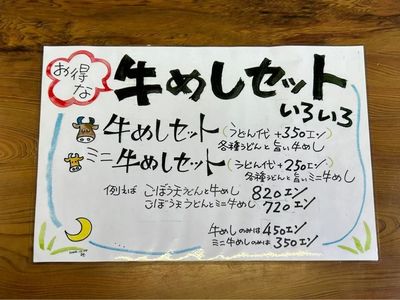 お得な
牛めしセット
いろいろ
牛めしセット (うどん代 +350エン)
各種うどんと旨い牛めし
ミニ牛めしセット (うどん代 +250エン)
各種うどんと旨いミニ牛めし
例えば ごぼう天うどんと牛めし 820エン
ごぼう天うどんとミニ牛めし 720エン
牛めしのみは 450エン
ミニ牛めしのみは 350エン